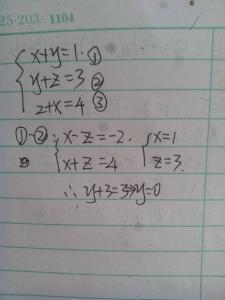 25-203· 1104
x+y=1. ①
y+z=3 ②
z+x=4 ③
①-② x-z=-2. x=1
x+z=4 z=3.
∴ y+3=3⇒y=0